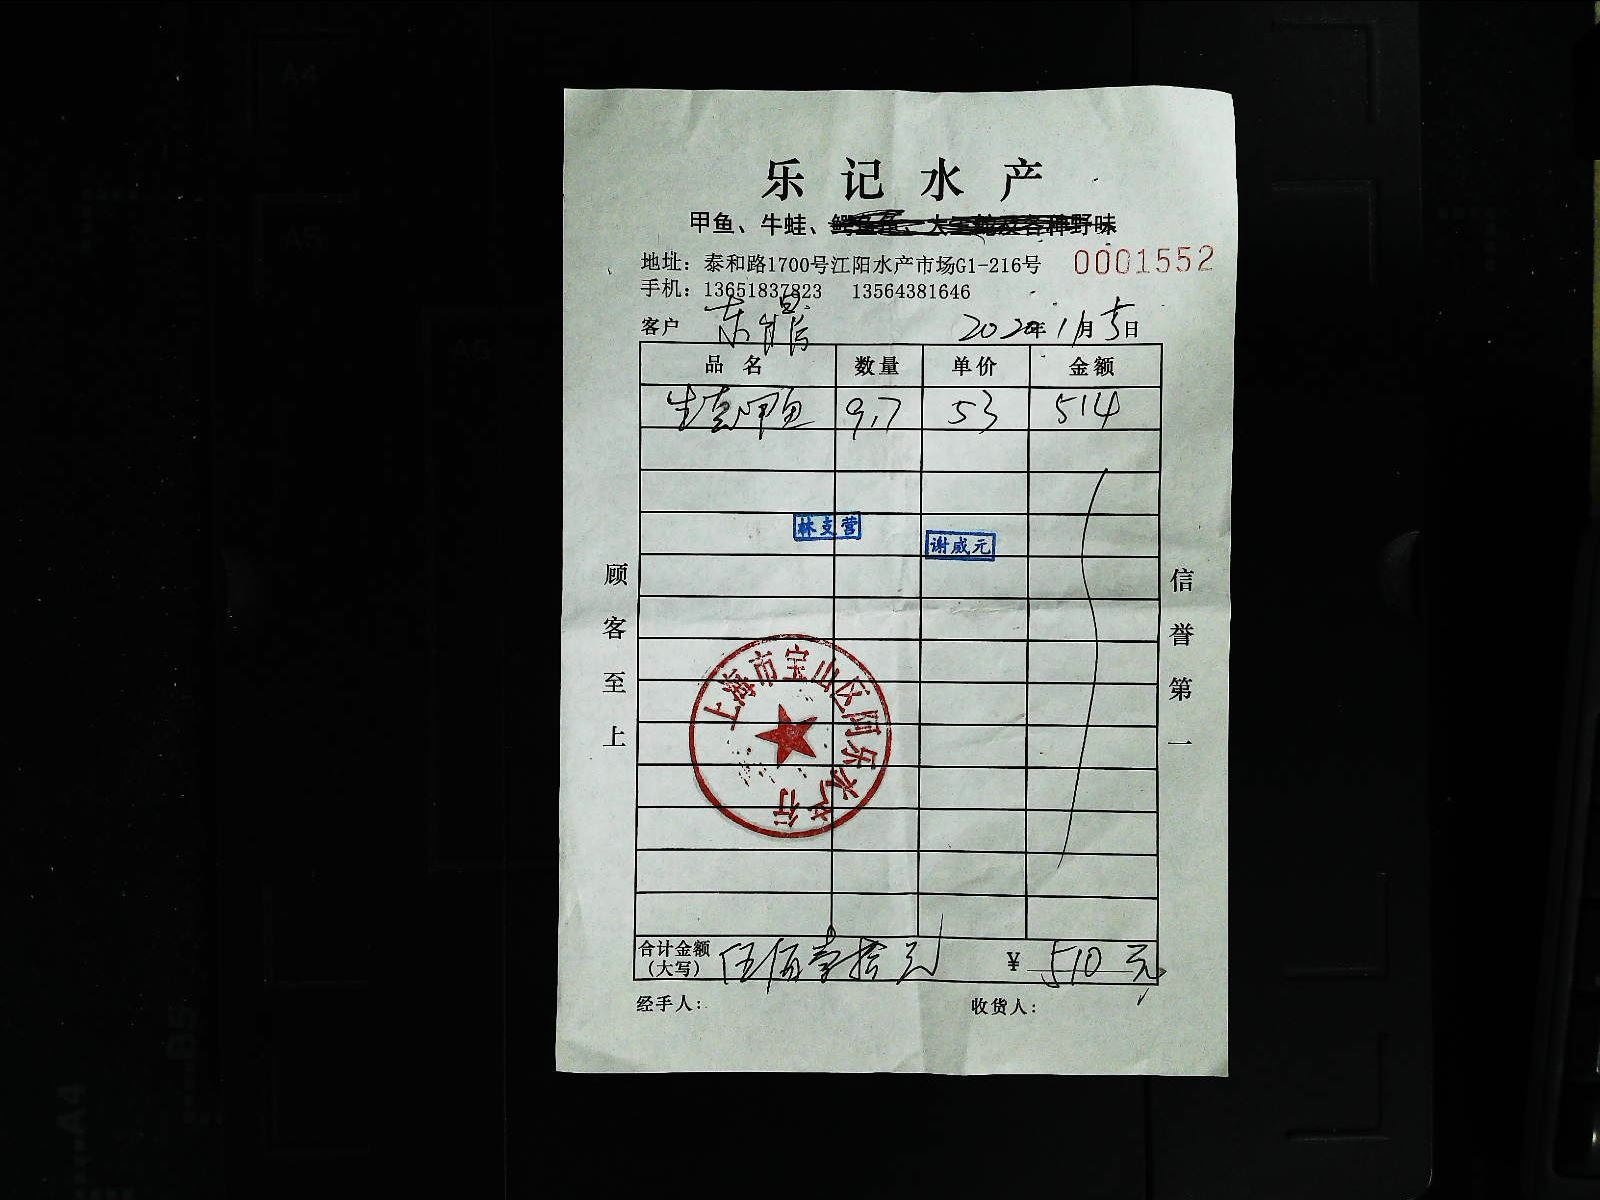 乐记水产
甲鱼、牛蛙、
地址：泰和路1700号江阳水产市场G1-216号
0001552
手机：13651837823 13564381646
客户
2020年1月5日
品名 数量 单价 金额
生态甲鱼 9.7 53 514
林支营
谢威元
顾客至上
信誉第一
上海市宝山区阿乐水产行
合计金额（大写） 伍佰壹拾元 ¥ 510元
经手人： 收货人：